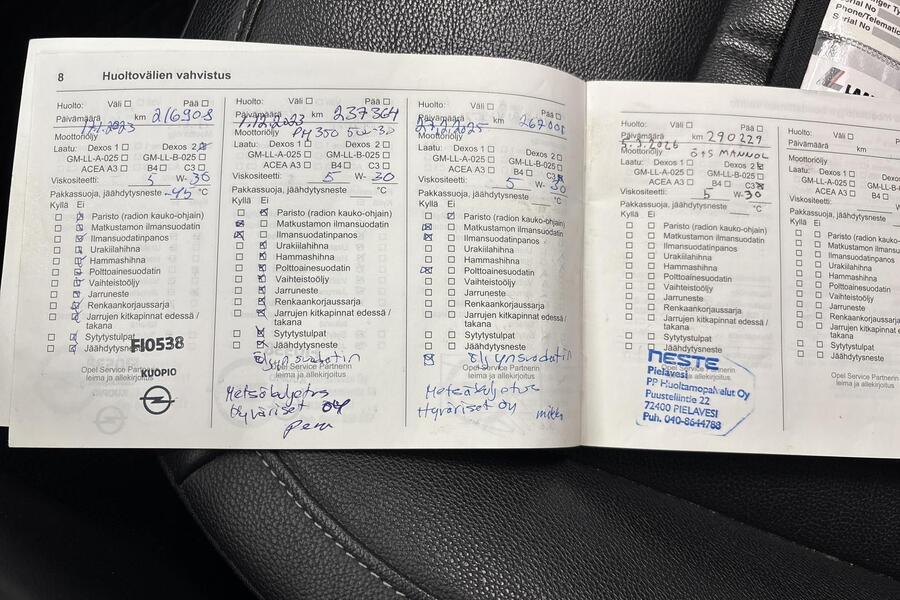 8 Huoltovälien vahvistus
Huolto: Väli Pää
Päivämäärä km 216908
Moottoriöljy
Laatu: Dexos 1 Dexos 2
GM-LL-A-025 GM-LL-B-025
ACEA A3 B4 C3
Viskositeetti: 5 W- 30
Pakkassuoja, jäähdytysneste -45 °C
Kyllä Ei
Paristo (radion kauko-ohjain)
Matkustamon ilmansuodatin
Ilmansuodatinpanos
Urakiilahihna
Hammashihna
Polttoainesuodatin
Vaihteistoöljy
Jarruneste
Renkaankorjaussarja
Jarrujen kitkapinnat edessä /
takana
Sytytystulpat
Jäähdytysneste
FI0538
Opel Service Partnerin
leima ja allekirjoitus
KUOPIO
Huolto: Väli Pää
Päivämäärä km 237364
7.12.2023
Moottoriöljy PM 350 5W-30
Laatu: Dexos 1 Dexos 2
GM-LL-A-025 GM-LL-B-025
ACEA A3 B4 C3
Viskositeetti: 5 W- 30
Pakkassuoja, jäähdytysneste °C
Kyllä Ei
Paristo (radion kauko-ohjain)
Matkustamon ilmansuodatin
Ilmansuodatinpanos
Urakiilahihna
Hammashihna
Polttoainesuodatin
Vaihteistoöljy
Jarruneste
Renkaankorjaussarja
Jarrujen kitkapinnat edessä /
takana
Sytytystulpat
Jäähdytysneste
Öljynsuodatin
Opel Service Partnerin
leima ja allekirjoitus
Metsäkuljetus
Hyväriset OY
Huolto: Väli Pää
Päivämäärä km 267008
Moottoriöljy
Laatu: Dexos 1 Dexos 2
GM-LL-A-025 GM-LL-B-025
ACEA A3 B4 C3
Viskositeetti: 5 W- 30
Pakkassuoja, jäähdytysneste °C
Kyllä Ei
Paristo (radion kauko-ohjain)
Matkustamon ilmansuodatin
Ilmansuodatinpanos
Urakiilahihna
Hammashihna
Polttoainesuodatin
Vaihteistoöljy
Jarruneste
Renkaankorjaussarja
Jarrujen kitkapinnat edessä /
takana
Sytytystulpat
Jäähdytysneste
Öljynsuodatin
Opel Service Partnerin
leima ja allekirjoitus
Metsäkuljetus
Hyväriset Oy
Huolto: Väli Pää
Päivämäärä km 290229
5.3.2026
Moottoriöljy ö+s MANNOL
Laatu: Dexos 1 Dexos 2
GM-LL-A-025 GM-LL-B-025
ACEA A3 B4 C3
Viskositeetti: 5 W- 30
Pakkassuoja, jäähdytysneste °C
Kyllä Ei
Paristo (radion kauko-ohjain)
Matkustamon ilmansuodatin
Ilmansuodatinpanos
Urakiilahihna
Hammashihna
Polttoainesuodatin
Vaihteistoöljy
Jarruneste
Renkaankorjaussarja
Jarrujen kitkapinnat edessä /
takana
Sytytystulpat
Jäähdytysneste
NESTE
Pielavesi
PP Huoltamopalvelut Oy
Puustellintie 22
72400 PIELAVESI
Puh. 040-8644788
Huolto: Väli
Päivämäärä km
Moottoriöljy
Laatu: Dexos 1
GM-LL-A-025
ACEA A3 B4
Viskositeetti:
Pakkassuoja, jäähdytysneste
Kyllä Ei
Paristo (radion
Matkustamon
Ilmansuodatinpanos
Urakiilahihna
Hammashihna
Polttoainesuodatin
Vaihteistoöljy
Jarruneste
Renkaankorjaussarja
Jarrujen kitkapinnat
takana
Sytytystulpat
Jäähdytysneste
Opel Service
leima ja
Serial No
Phone/Telematic
Serial No